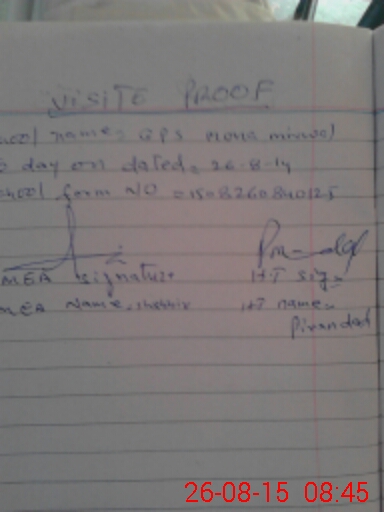 VISITE PROOF
ool name= GPS mirwal
day on dated= 26-8-14
hool form NO = 1508260840125
MEA signature H-T sig=
MEA Name= H-T name=
Pirandad
26-08-15 08:45